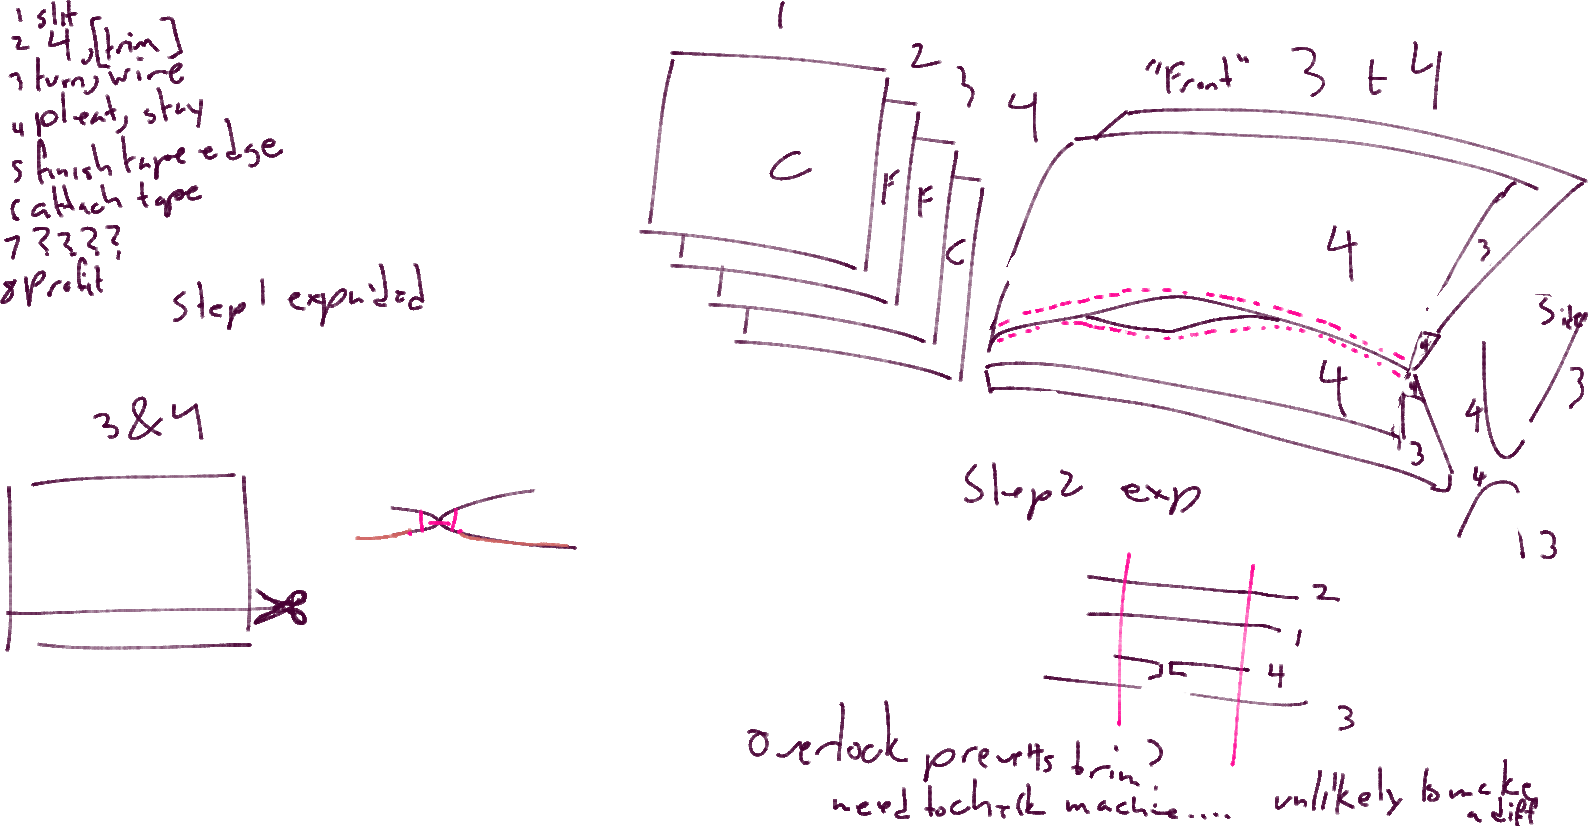 1 slit
2 4, [trim]
3 turn, wire
4 pleat, stay
5 finish tape edge
6 attach tape
7 ????
8 profit
Step 1 expanded
1
2
3
4
C
F
F
C
"Front" 3 + 4
4
3
4
4
4
3
Side
4
3
4
13
3&4
Step 2 exp
2
1
4
3
Overlock prevents trim?
need to check machine....
unlikely to make
a diff